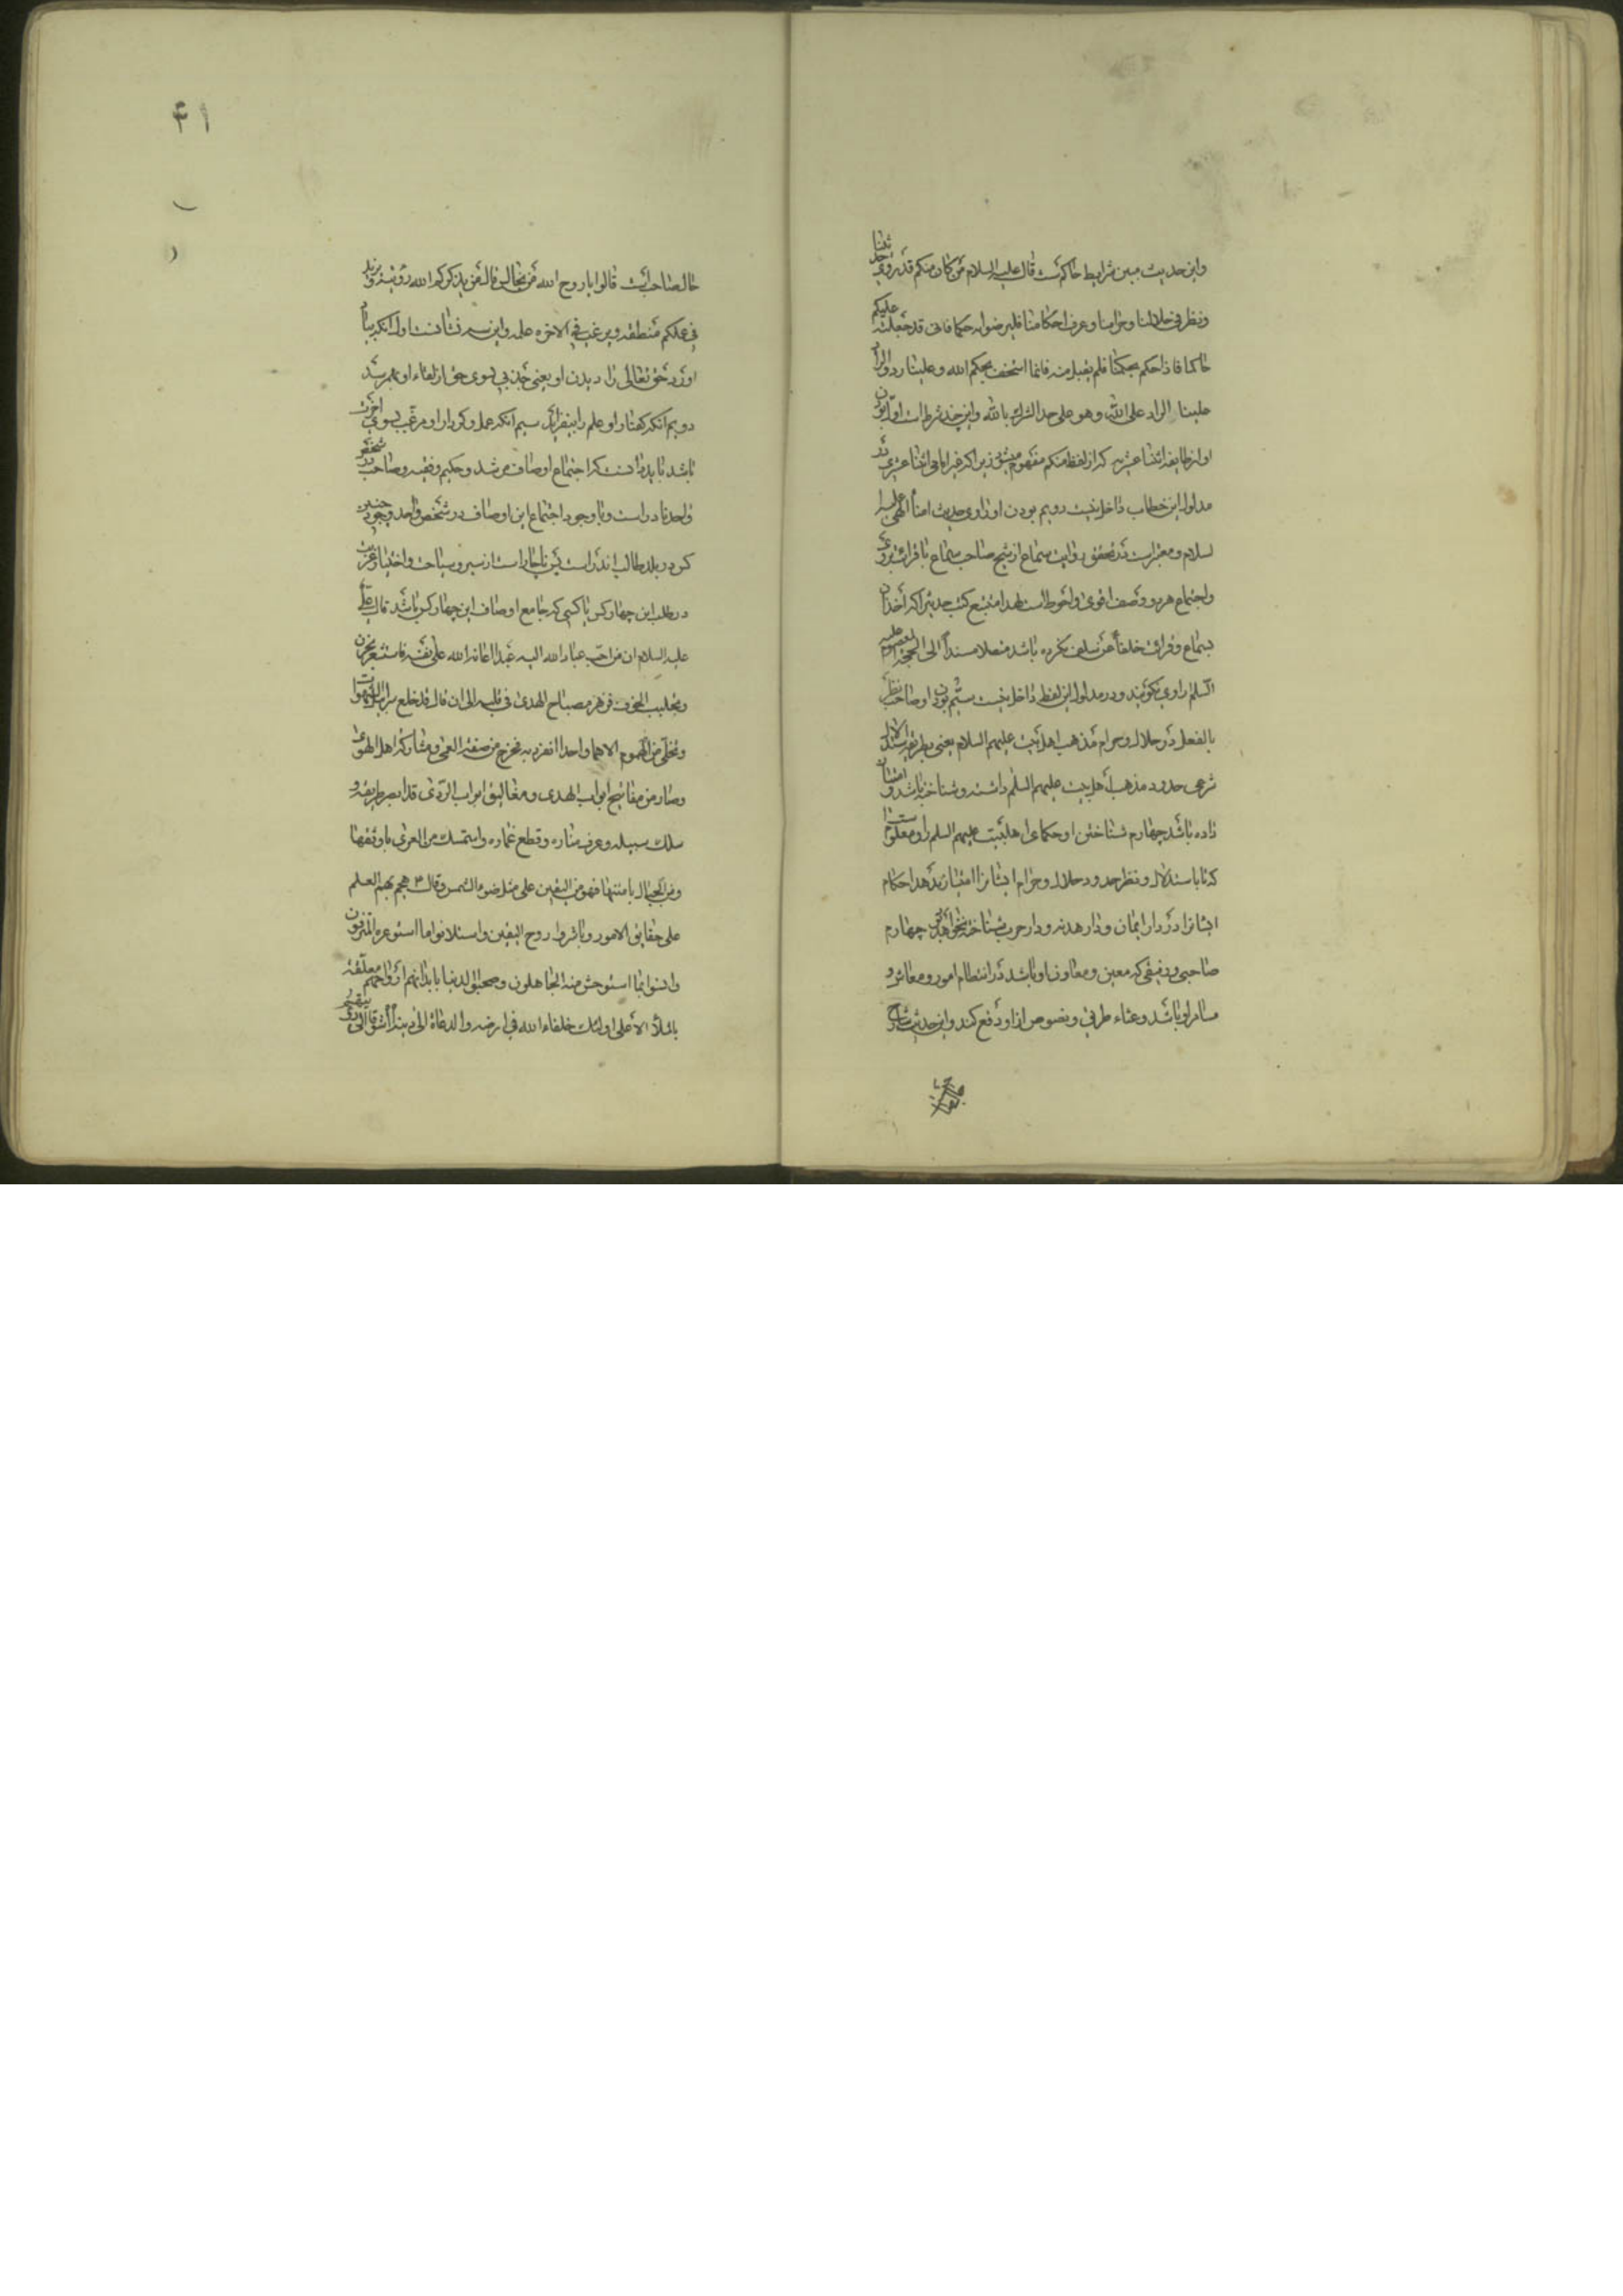 واین حدیث مبین شرایط حاکم است قال علیه السلام من کان منکم قد روی حدیثنا
ونظر فی حلالنا وحرامنا وعرف احکامنا فلیرضوا به حکما فانی قد جعلته علیکم
حاکما فاذا حکم بحکمنا فلم یقبل منه فانما استخف بحکم الله وعلینا رد والراد
علینا الراد علی الله وهو علی حد الشرک بالله واین چند شرط است اول بودن
او از طایفه اثنا عشریه که از لفظ منکم مفهوم میشود زیرا که غیر امامی اثنا عشری در
مدلول این خطاب داخل نیست دویم بودن او راوی حدیث امناء الهی علیهم
السلام ومعتبر است در تحقق روایت سماع از شیخ صاحب سماع یا قرائت بر وی
واجتماع هر دو وصف اقوی واحوط است لهذا متتبع کتب حدیث را که اخذ آن
بسماع وقرائت خلفاً عن سلف نکرده باشد متصلا مسنداً الی الحجة المعصوم علیه
السلم راوی نگویند ودر مدلول این لفظ داخل نیست سیم بودن او صاحب نظر
بالفعل در حلال وحرام مذهب اهل بیت علیهم السلام یعنی بطریق استدلال
شرعی حدود مذهب اهل بیت علیهم السلم دانسته وشناخته باشد و امتیاز
داده باشد چهارم شناختن او حکمای اهلبیت علیهم السلم را ومعلوم است
که تا باستدلال ونظر حدود حلال وحرام ایشان را امتیاز ندهد احکام
ایشانرا در دار ایمان ودار هدنه ودار حرب شناخته نخواهد بود چهارم
صاحبی ورفیقی که معین ومعاون او باشد در انتظام امور ومعاشرو
مسامر او باشد وعناء طریق وبؤس از او دفع کند واین حدیث شارح
۴۱
حال صاحب است قالوا یا روح الله من نجالس قال من یذکرکم الله رؤیته ویزید
فی علمکم منطقه ویرغبکم فی الاخره عمله واین سه نشانست اول آنکه بیاد
آورد حق تعالی را دیدن او یعنی جذبی بسوی حق از لقاء او بهم رسد
دویم آنکه گفتار او علم را بیفزاید سیم آنکه عمل وکردار او مرغب بسوی آخرت
باشد باید دانست که اجتماع اوصاف مرشد وحکیم وفقیه وصاحب در شخص
واحد نادر است وبا وجود اجتماع این اوصاف در شخص واحد وجود چنین
کس در بلد طالب اندر است پس ناچار است از سیر وسیاحت واختیار غربت
در طلب این چهار کس یا کسی که جامع اوصاف این چهار کس باشد قال علی
علیه السلام ان من احب عباد الله الیه عبدا اعانه الله علی نفسه فاستشعر الحزن
وتجلبب الخوف فزهر مصباح الهدی فی قلبه الی ان قال قد خلع سرابیل الشهوات
وتخلی من الهموم الا هما واحدا انفرد به فخرج من صفة العمی ومشارکة اهل الهوی
وصار من مفاتیح ابواب الهدی ومغالیق ابواب الردی قد ابصر طریقه و
سلک سبیله وعرف مناره وقطع غماره واستمسک من العری باوثقها
ومن الحبال بامتنها فهو من الیقین علی مثل ضوء الشمس وقال ۴ هجم بهم العلم
علی حقایق الامور وباشروا روح الیقین واستلانوا ما استوعره المترفون
وانسوا بما استوحش منه الجاهلون وصحبوا الدنیا بابدانهم ارواحهم معلقة
بالملأ الاعلی اولئک خلفاء الله فی ارضه والدعاة الی دینه